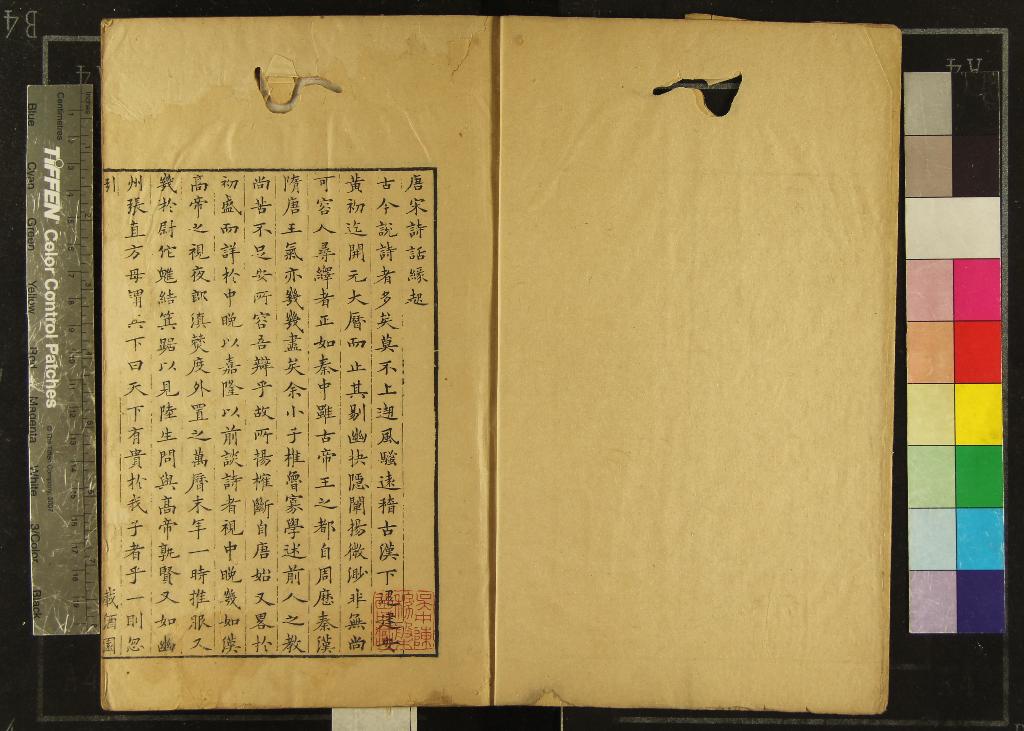 唐宋詩話緣起
古今說詩者多矣莫不上遡風騷遠稽古漢下建安
黃初迄開元大曆而止其剔幽抉隱闡揚微渺非無尚
可容人尋繹者正如秦中雖古帝王之都自周歷秦漢
隋唐王氣亦幾幾盡矣余小子椎魯寡學述前人之教
尚苦不足安所容吾辯乎故所揚搉斷自唐始又畧於
初盛而詳於中晚以嘉隆以前談詩者視中晚幾如漢
高帝之視夜郎滇僰度外置之萬曆末年一時推服又
幾於尉佗魋結箕踞以見陸生問與高帝孰賢又如幽
州張直方母謂其下曰天下有貴於我子者乎一則忽
引
載酒園
TIFFEN Color Control Patches
Centimetres
Inches
Blue
Cyan
Green
Yellow
Red
Magenta
White
3/Color
Black
B4
A4